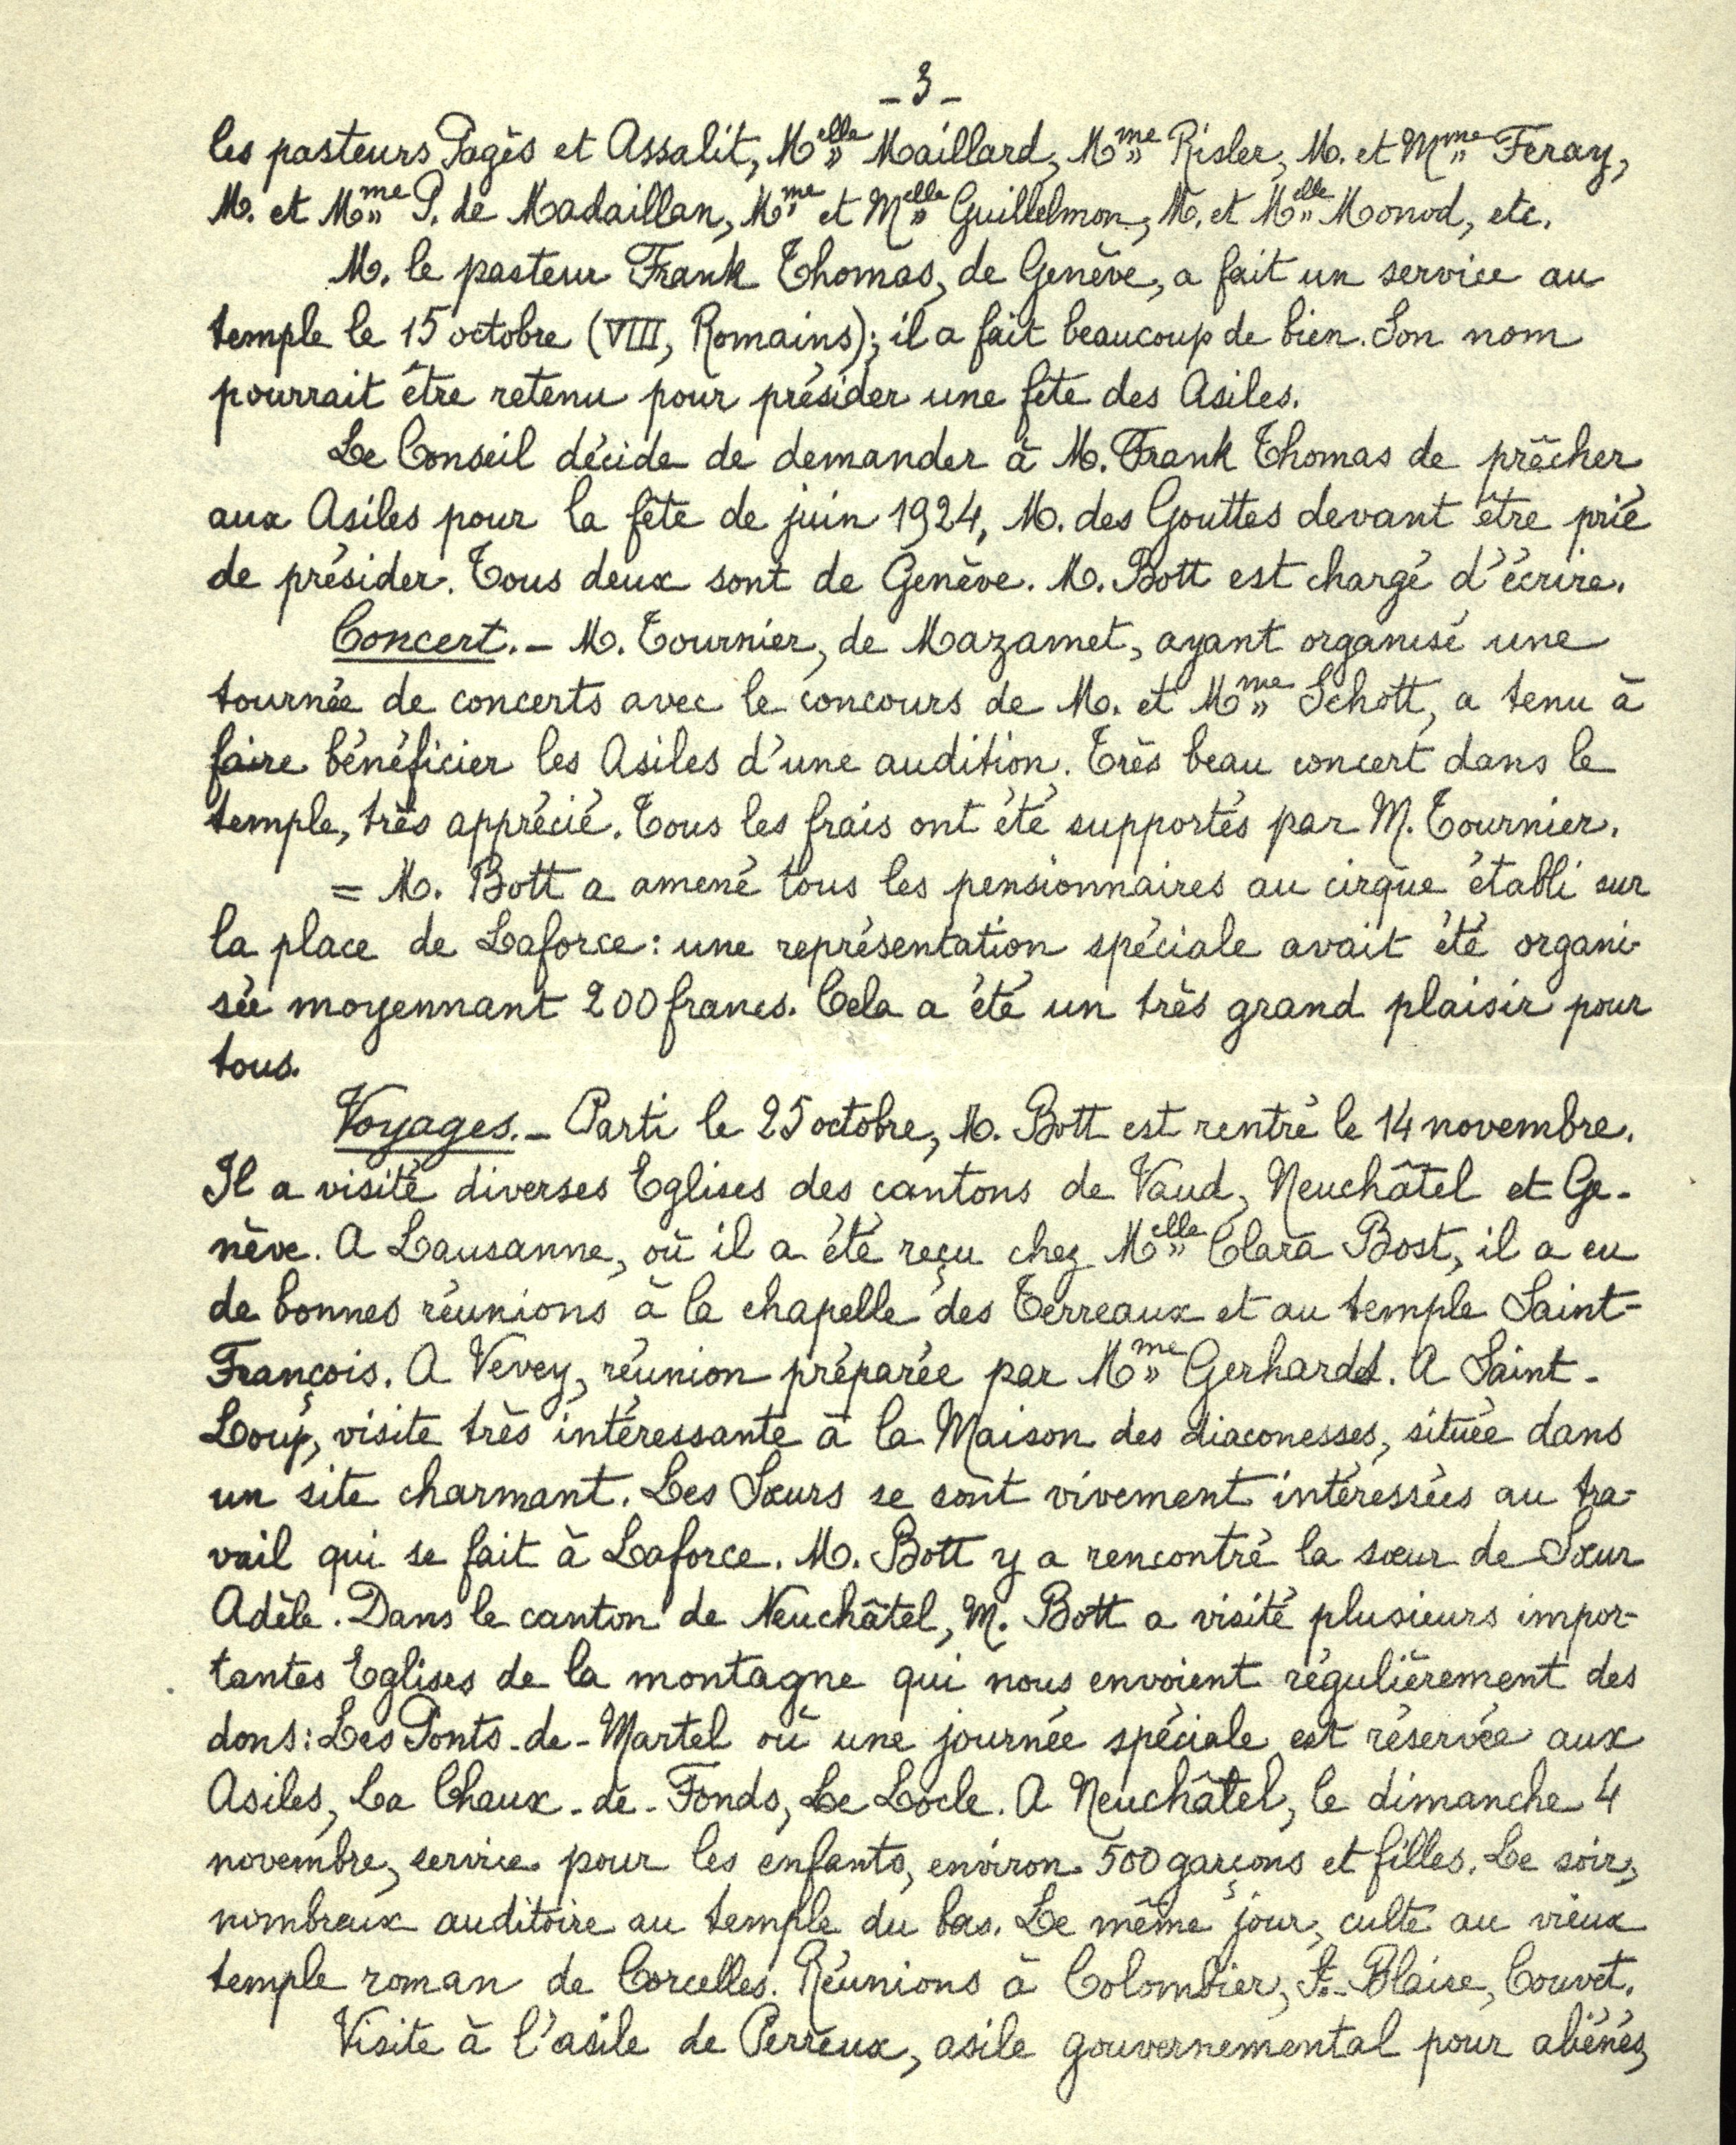 - 3 -
les pasteurs Pagès et Assalit, Melle Maillard, Mme Risler, M. et Mme Feray,
M. et Mme P. de Madaillan, Mme et Melle Guillelmon, M. et Melle Monod, etc.
M. le pasteur Frank Thomas, de Genève, a fait un service au
temple le 15 octobre (VIII, Romains); il a fait beaucoup de bien. Son nom
pourrait être retenu pour présider une fête des Asiles.
Le Conseil décide de demander à M. Frank Thomas de prêcher
aux Asiles pour la fête de juin 1924, M. des Gouttes devant être prié
de présider. Tous deux sont de Genève. M. Bott est chargé d'écrire.
Concert. - M. Tournier, de Mazamet, ayant organisé une
tournée de concerts avec le concours de M. et Mme Schott, a tenu à
faire bénéficier les Asiles d'une audition. Très beau concert dans le
temple, très apprécié. Tous les frais ont été supportés par M. Tournier.
= M. Bott a amené tous les pensionnaires au cirque établi sur
la place de Laforce: une représentation spéciale avait été organi-
sée moyennant 200 francs. Cela a été un très grand plaisir pour
tous.
Voyages. - Parti le 25 octobre, M. Bott est rentré le 14 novembre.
Il a visité diverses Eglises des cantons de Vaud, Neuchâtel et Ge-
nève. A Lausanne, où il a été reçu chez Melle Clara Bost, il a eu
de bonnes réunions à la chapelle des Terreaux et au temple Saint-
François. A Vevey, réunion préparée par Mme Gerhardt. A Saint-
Loup, visite très intéressante à la Maison des diaconesses, située dans
un site charmant. Les Sœurs se sont vivement intéressées au tra-
vail qui se fait à Laforce. M. Bott y a rencontré la sœur de Sœur
Adèle. Dans le canton de Neuchâtel, M. Bott a visité plusieurs impor-
tantes Eglises de la montagne qui nous envoient régulièrement des
dons: Les Ponts-de-Martel où une journée spéciale est réservée aux
Asiles, La Chaux-de-Fonds, Le Locle. A Neuchâtel, le dimanche 4
novembre, service pour les enfants, environ 500 garçons et filles. Le soir,
nombreux auditoire au temple du bas. Le même jour, culte au vieux
temple roman de Corcelles. Réunions à Colombier, St-Blaise, Couvet.
Visite à l'asile de Perreux, asile gouvernemental pour aliénés,